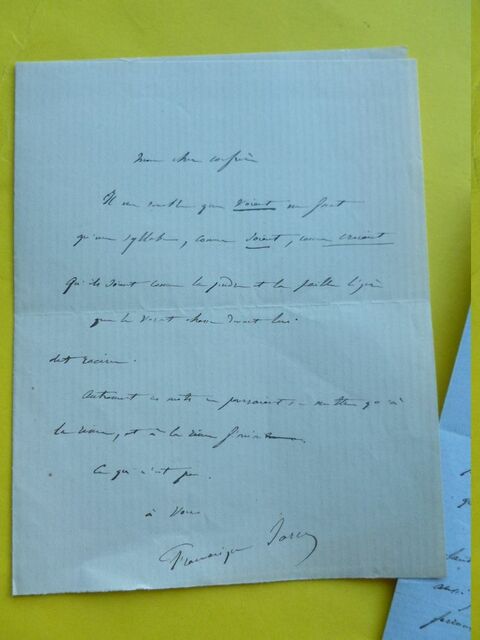 mon cher confrère
Il me semble que voient ne fait
qu'une syllabe, comme soient, comme
Qu'ils soient comme la poudre et la paille légère
que le vent chasse devant lui.
dit Racine.
Autrement ces mots ne pourraient se mettre qu'à
la rime, et à la rime féminine.
Ce qui n'est pas.
à vous
Francisque Sarcey